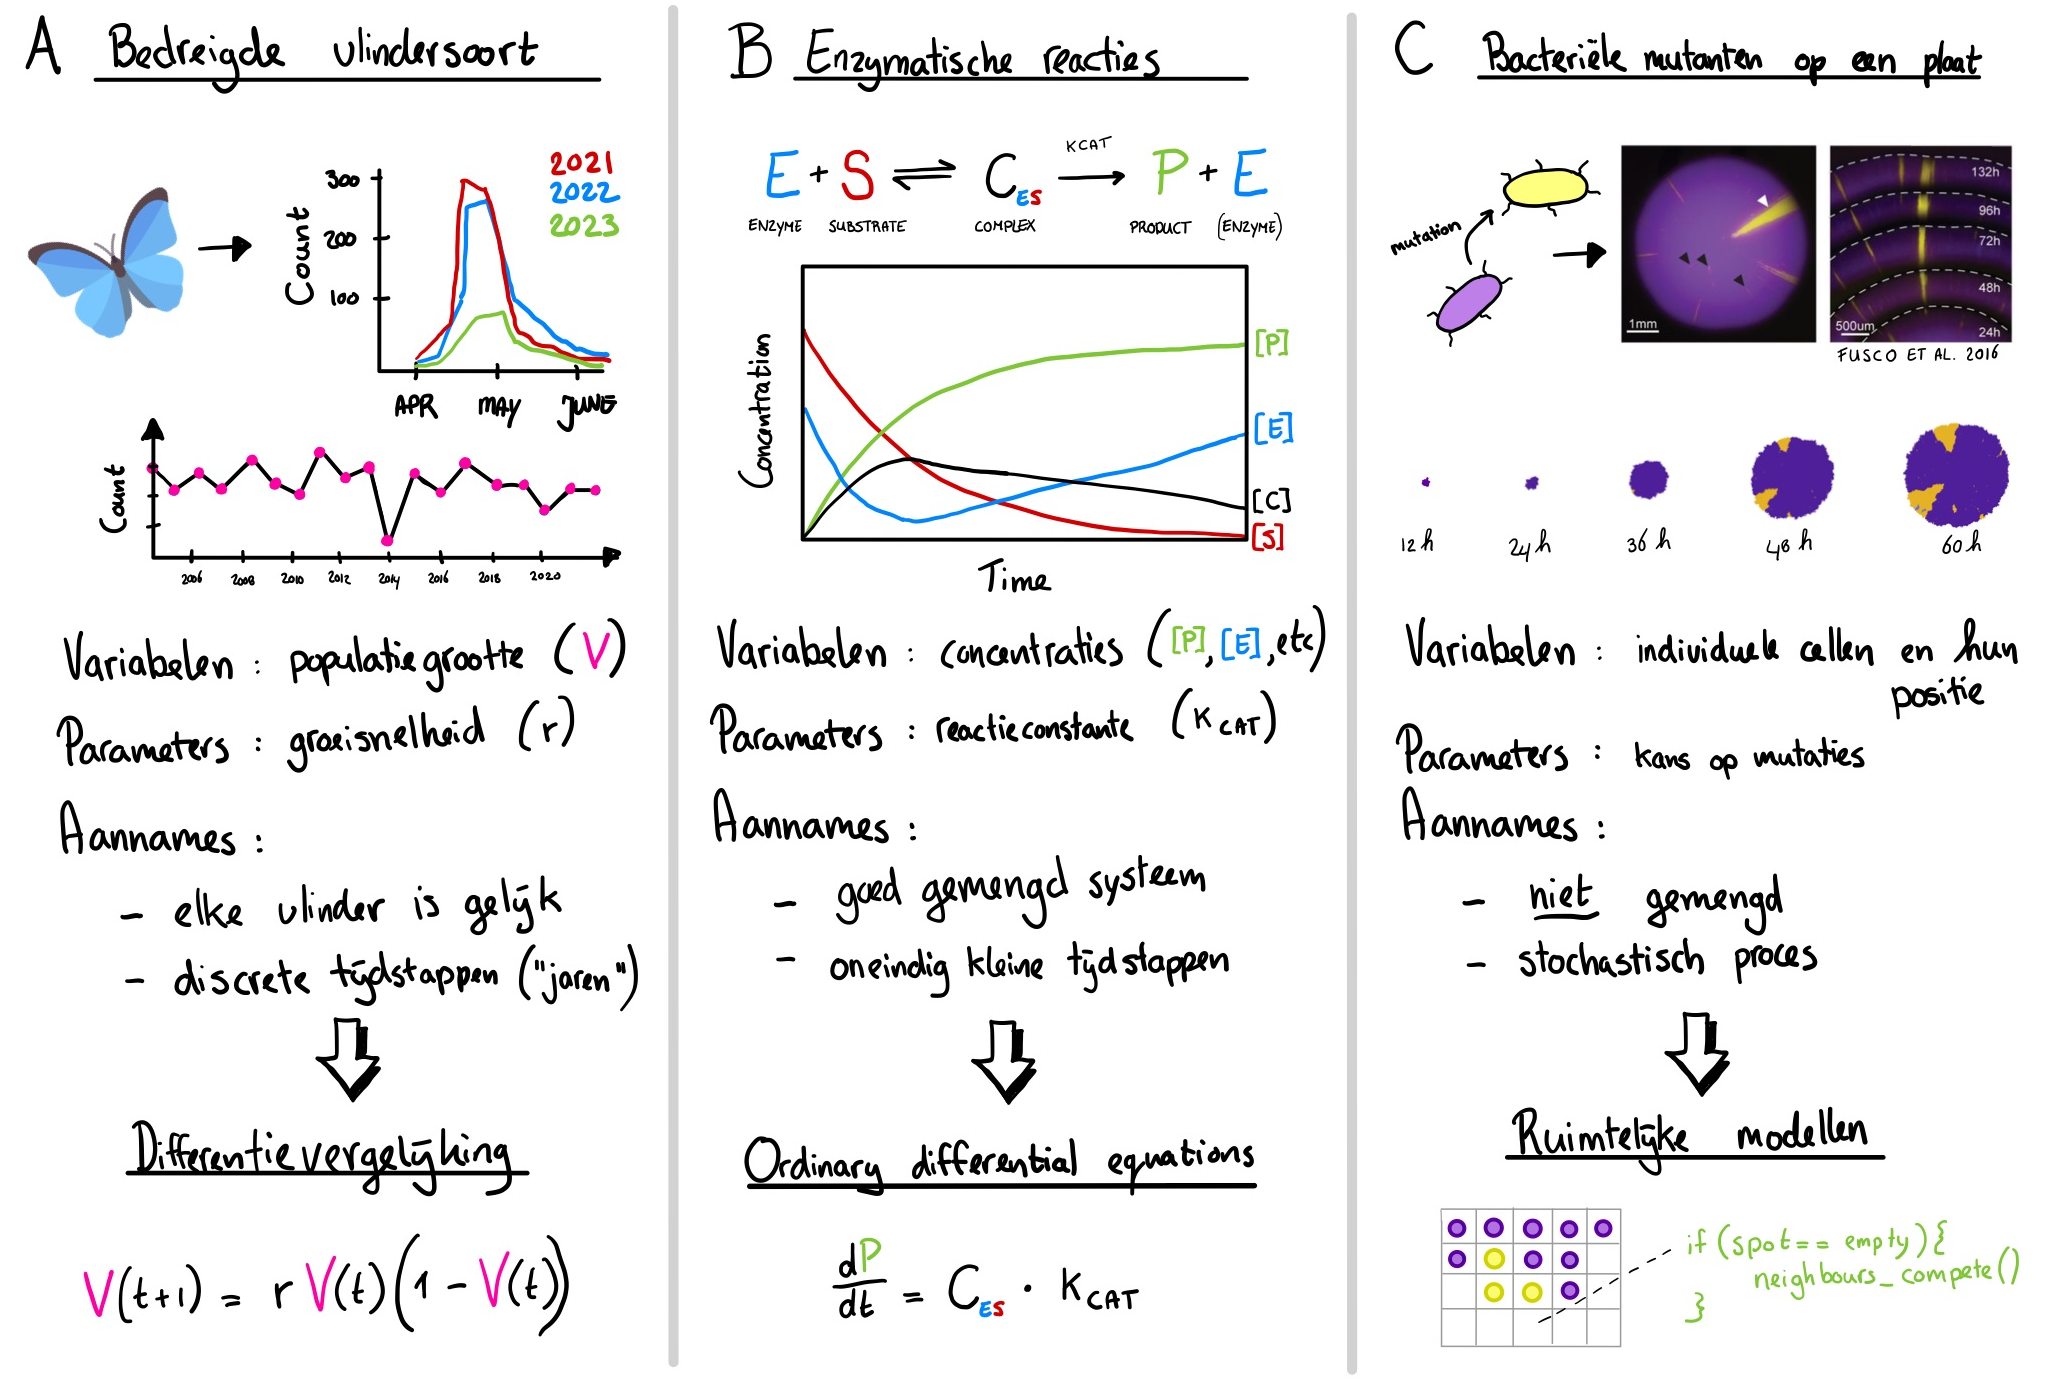 A Bedreigde vlindersoort
2021
2022
2023
Count
300
200
100
APR MAY JUNE
Count
2006 2008 2010 2012 2014 2016 2018 2020
Variabelen : populatiegrootte (V)
Parameters : groeisnelheid (r)
Aannames :
- elke vlinder is gelijk
- discrete tijdstappen ("jaren")
Differentievergelijking
V(t+1) = r V(t) (1 - V(t))
B Enzymatische reacties
KCAT
E + S ⇌ C_ES → P + E
ENZYME SUBSTRATE COMPLEX PRODUCT (ENZYME)
Concentration
[P]
[E]
[C]
[S]
Time
Variabelen : concentraties ([P], [E], etc)
Parameters : reactieconstante (K_CAT)
Aannames :
- goed gemengd systeem
- oneindig kleine tijdstappen
Ordinary differential equations
dP/dt = C_ES · K_CAT
C Bacteriële mutanten op een plaat
mutation
1mm
132h
96h
72h
48h
24h
500um
FUSCO ET AL. 2016
12h 24h 36h 48h 60h
Variabelen : individuele cellen en hun
positie
Parameters : kans op mutaties
Aannames :
- niet gemengd
- stochastisch proces
Ruimtelijke modellen
if (spot== empty){
neighbours_compete()
}